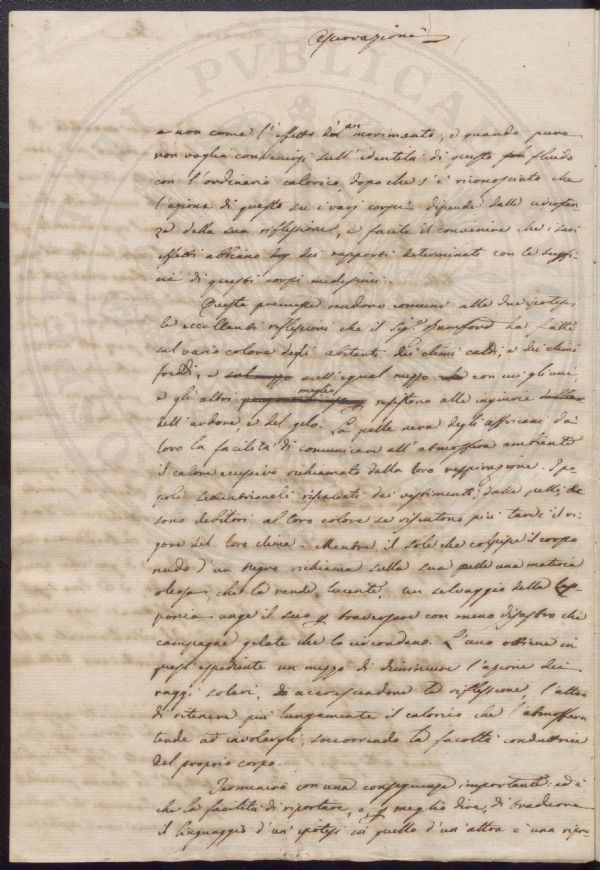 Osservazioni
e non come l'effetto d'un movimento; e quando pure
non voglia convenirsi sull'identità di questo fluido
con l'ordinario calorico, dopo che s'è riconosciuto che
l'azione di questo su i varj corpi dipende dalle circostan-
za della sua riflessione, è facile il convenire che i suoi
effetti abbiano dei rapporti determinati con le superfi-
cie di questi corpi medesimi.
Queste premesse rendono comuni alle due ipotesi
le eccellenti riflessioni che il Sig.r Rumford ha fatte
sul vario colore degli abitanti dei climi caldi, e dei climi
freddi, e sull'egual mezzo con cui gli uni,
e gli altri meglio resistono alle ingiurie
dell'ardore e del gelo. La pelle nera degli affricani dà
loro la facilità di comunicare all'atmosfera ambiente
il calore eccessivo richiamato dalla loro respirazione. I po-
poli settentrionali riscaldati dai vestimenti, dalle pelli,
sono debitori al loro colore se risentono più tardi il ri-
gore del loro clima. Mentre il sole che colpisce il corpo
nudo d'un negro richiama sulla sua pelle una materia
oleosa, che la rende lucente, un selvaggio della Lap-
ponia unge il suo traversare con meno disastro che
campagne gelate che lo circondano. L'uno ottiene in
quest'espediente un mezzo di diminuire l'azione dei
raggi solari, accrescendone la riflessione, l'altro
di ritenere più lungamente il calorico che l'atmosfera
tende ad involargli, soccorrendo la facoltà conduttrice
del proprio corpo.
Terminerò con una conseguenza importante: ed è
che la facilità di riportare, o, meglio dire, di tradurre
il linguaggio d'un'ipotesi in quello d'un'altra è una ripro-